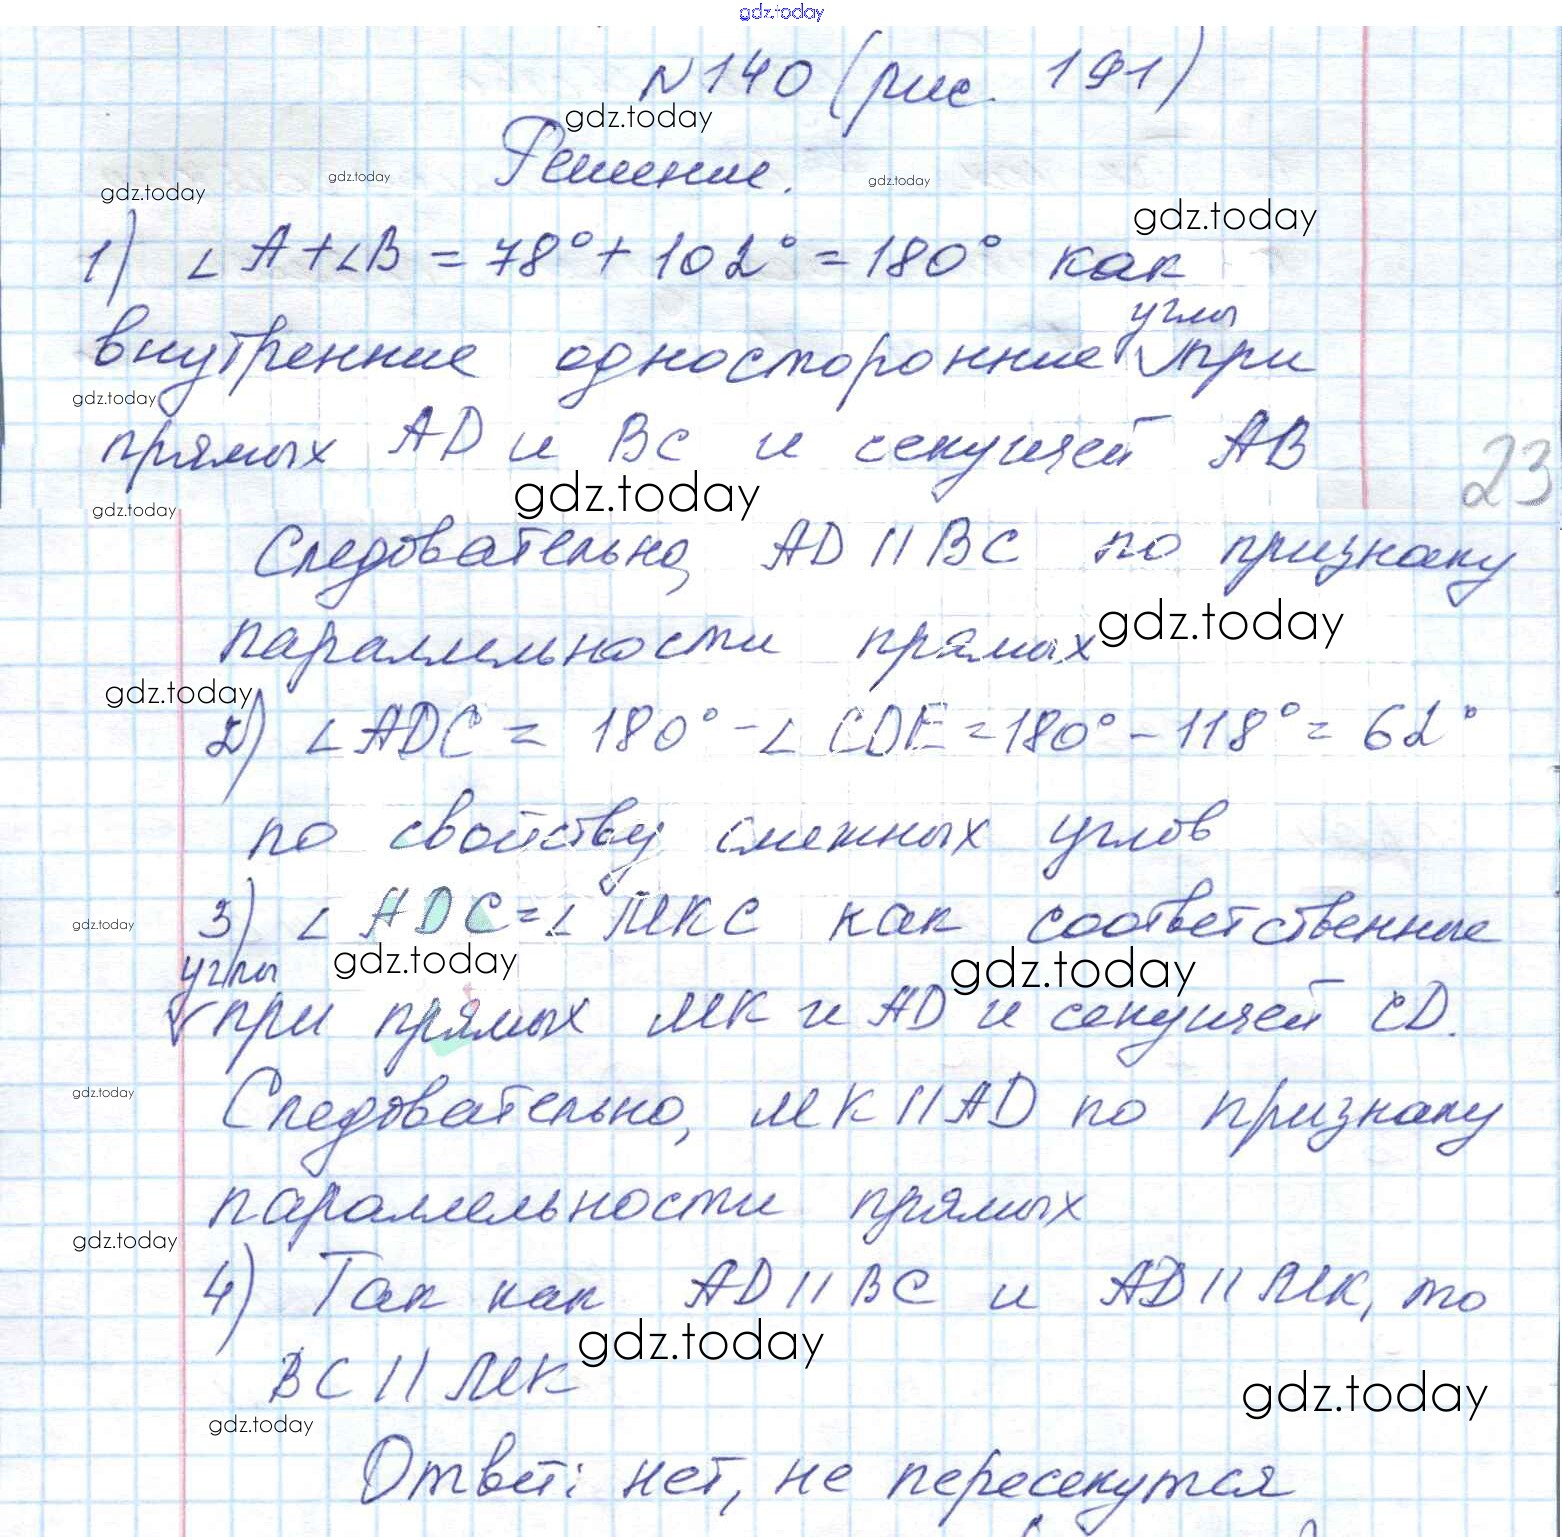 gdz.today
N140 (рис. 191)
gdz.today
Решение.
gdz.today gdz.today gdz.today
gdz.today
1) ∠A+∠B = 78°+102°=180° как
углы
внутренние односторонние √ при
gdz.today
прямых AD и BC и секущей AB
23
gdz.today
gdz.today
Следовательно, AD || BC по признаку
gdz.today
параллельности прямых
gdz.today
2) ∠ADC = 180° - ∠CDE = 180° - 118° = 62°
по свойству смежных углов
3) ∠ADC = ∠MKC как соответственные
gdz.today
углы gdz.today gdz.today
√ при прямых MK и AD и секущей CD.
gdz.today
Следовательно, MK || AD по признаку
параллельности прямых
gdz.today
4) Так как AD || BC и AD || MK, то
gdz.today
BC || MK
gdz.today
gdz.today
Ответ: нет, не пересекутся